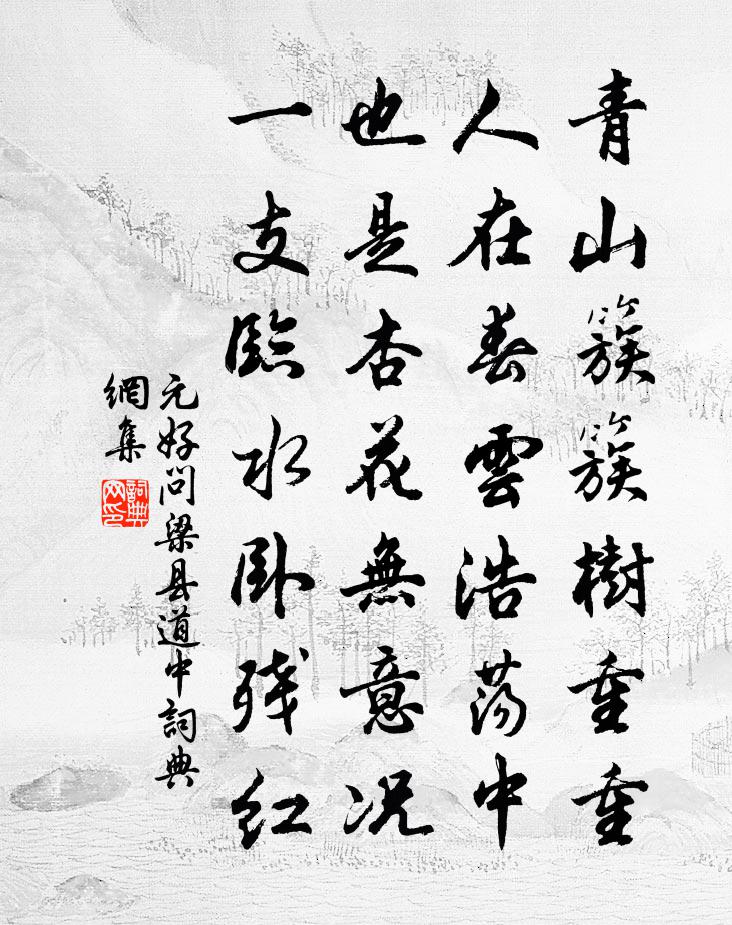 青山簇簇樹重重
人在春雲浩蕩中
也是杏花無意況
一支臨水卧殘红
元好问梁县道中詞典
網集
詞典
网印